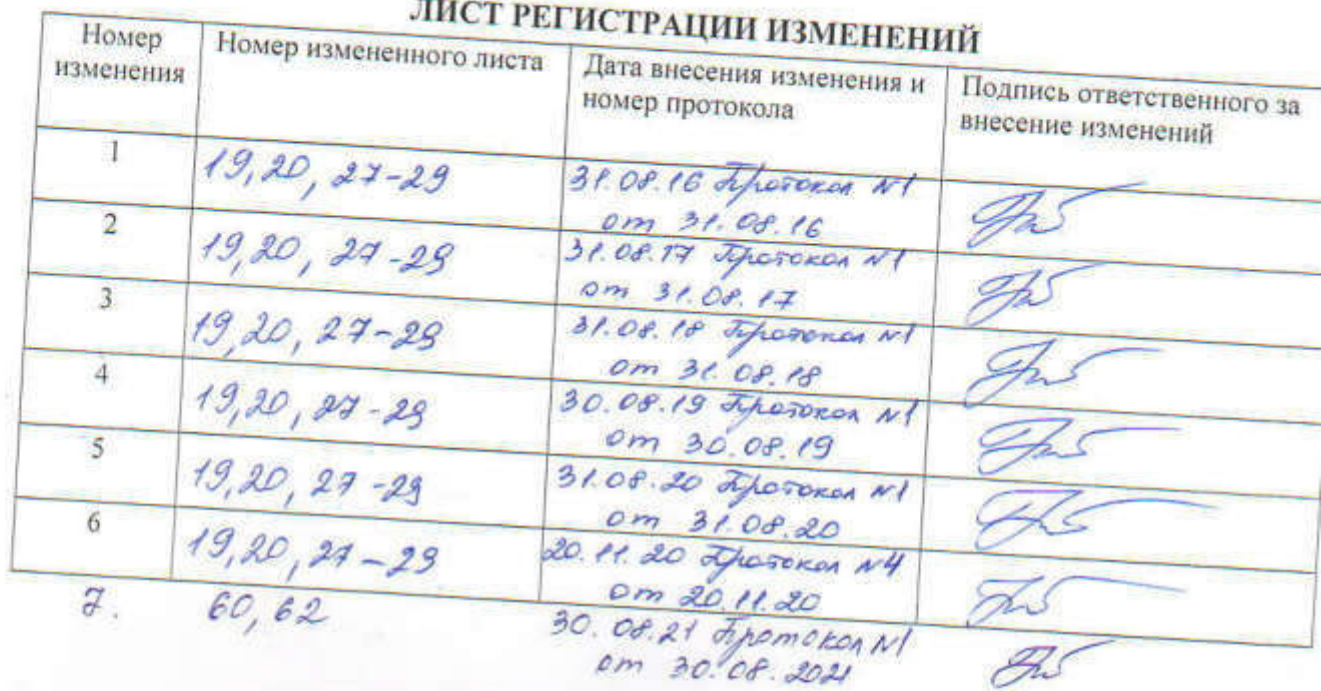 ЛИСТ РЕГИСТРАЦИИ ИЗМЕНЕНИЙ
Номер изменения Номер измененного листа Дата внесения изменения и номер протокола Подпись ответственного за внесение изменений
1 19,20, 27-29 31.08.16 Протокол №1
от 31.08.16
2 19,20, 27-29 31.08.17 Протокол №1
от 31.08.17
3 19,20, 27-29 31.08.18 Протокол №1
от 31.08.18
4 19,20, 27-29 30.08.19 Протокол №1
от 30.08.19
5 19,20, 27-29 31.08.20 Протокол №1
от 31.08.20
6 19,20, 27-29 20.11.20 Протокол №4
от 20.11.20
7. 60, 62 30.08.21 Протокол №1
от 30.08.2021